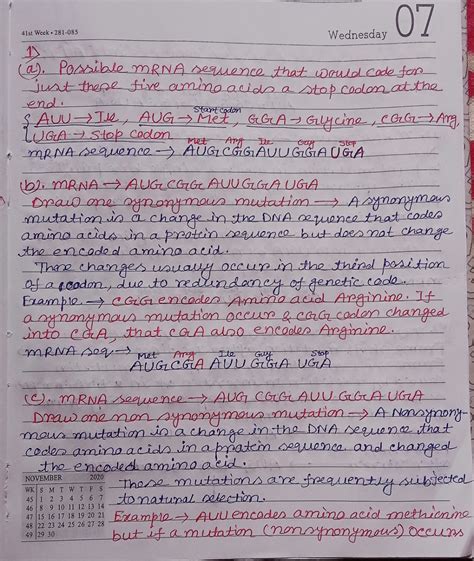 41st Week • 281-085
Wednesday 07
1)
(a). Possible mRNA sequence that would code for
just these five amino acids a stop codon at the
end.
Start codon
{ AUU → Ile, AUG → Met, GGA → Glycine, CGG → Arg,
UGA → Stop codon
Met Arg Ile Gay Stop
mRNA sequence → AUG CGG AUU GGA UGA
(b). mRNA → AUG CGG AUU GGA UGA
Draw one synonymous mutation → A synonymous
mutation is a change in the DNA sequence that codes
amino acids in a protein sequence but does not change
the encoded amino acid.
These changes usually occur in the third position
of a codon, due to redundancy of genetic code.
Example → CGG encodes Amino acid Arginine. If
a synonymous mutation occur & CGG codon changed
into CGA, that CGA also encodes Arginine.
Met Arg Ile Gay Stop
mRNA seq → AUG CGA AUU GGA UGA
(c). mRNA sequence → AUG CGG AUU GGA UGA
Draw one non synonymous mutation → A Nonsynony-
mous mutation is a change in the DNA sequence that
codes amino acids in a protein sequence and changed
the encoded amino acid.
These mutations are frequently subjected
to natural selection.
Example → AUU encodes amino acid methionine
but if a mutation (nonsynonymous) occurs
NOVEMBER 2020
WK S M T W T F S
45 1 2 3 4 5 6 7
46 8 9 10 11 12 13 14
47 15 16 17 18 19 20 21
48 22 23 24 25 26 27 28
49 29 30